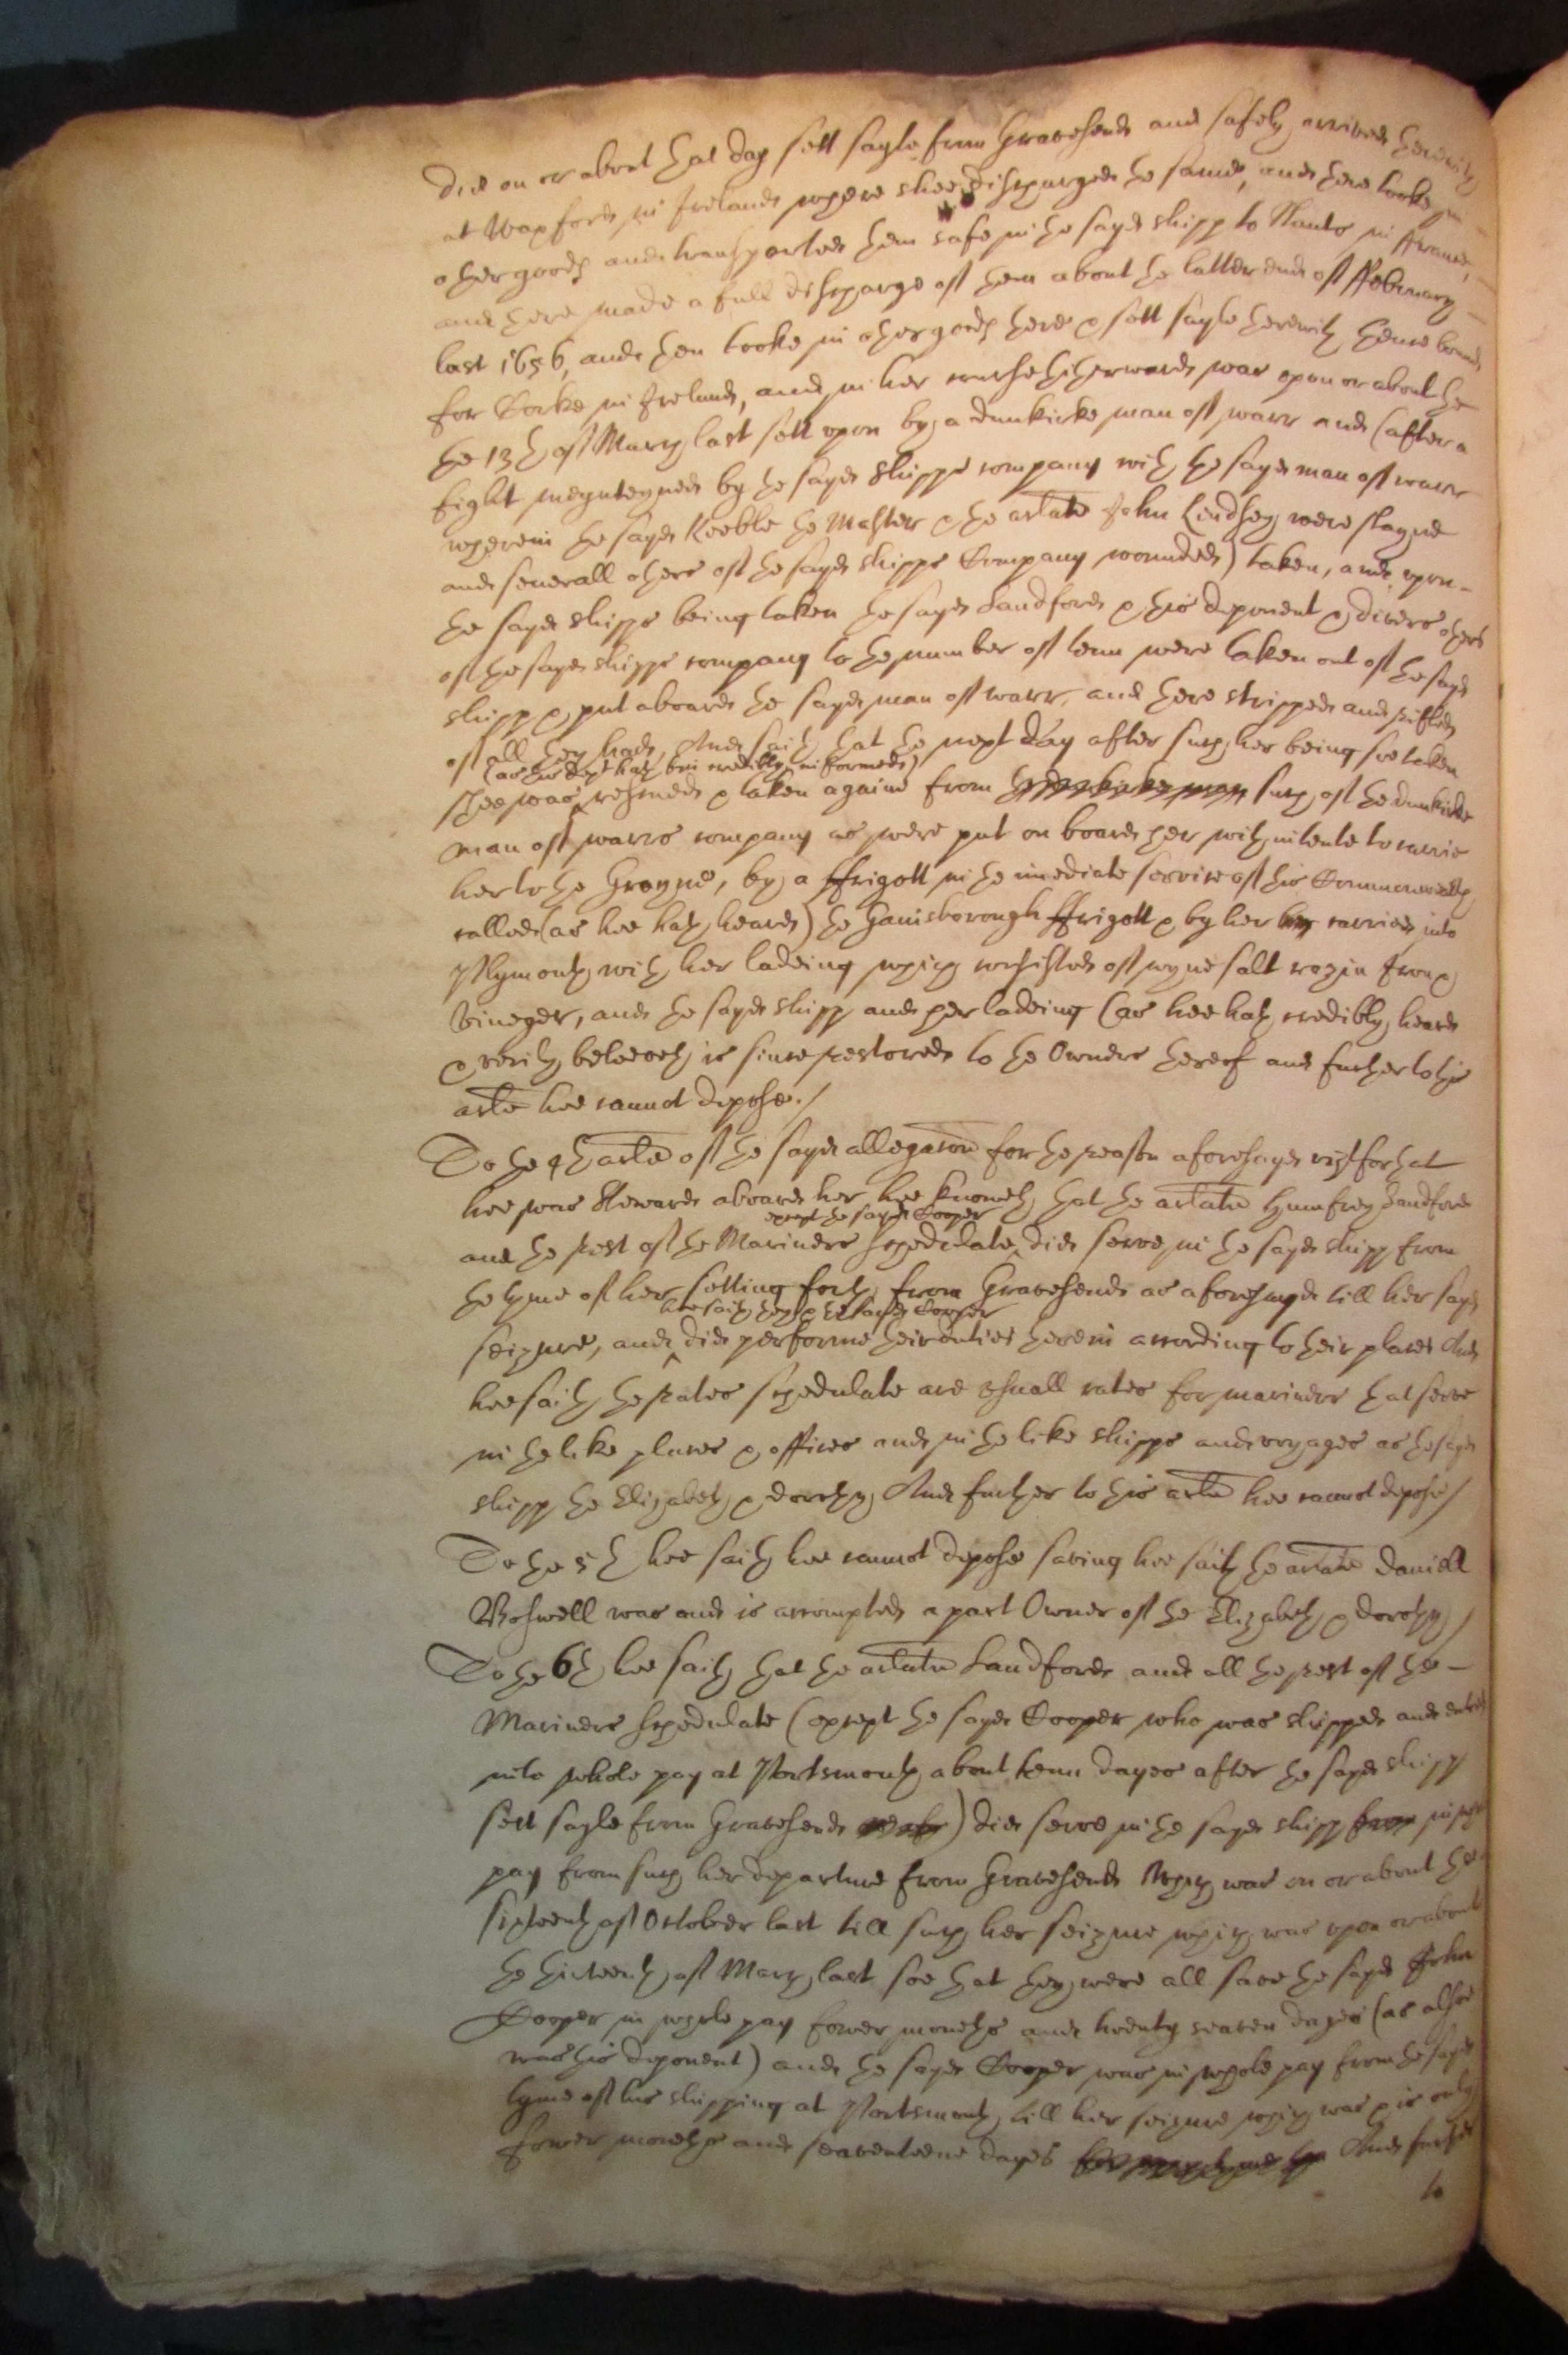 did on or about that day sett sayle from Gravesend and safely arrived therewith
at Waxford in Ireland where shee dischargeth the same, and there tooke in
other goods and transported them safe in the sayd shipp to Nants in ffrance,
and there made a full discharge of them about the latter end of ffebruary
last 1656, and then tooke in other goods there & sett sayle therewith thence bound
for Corke in Ireland, and in her course thitherwards was upon or about the
the 13th of March last sett upon by a dunkirke man of warr and (after a
fight meynteyned by the sayd shipps company with the sayd man of warr
wherein the sayd Keeble the Master & the arlate John Lendsey were slayne
and severall others of the sayd shipps Company wounded) taken, and upon
the sayd shipps being taken the sayd Sandford & this deponent & divers others
of the sayd shipps company to the number of tenn were taken out of the sayd
shipp & put aboard the sayd man of warr, and there stripped and rifled
of all they had, And saith that the next day after such her being soe taken
(as this dept hath bin credibly informed)
shee was rescued & taken againe from such of the dunkirke
man of warrs company as were put on board her with intente to carrie
her to the Groyne, by a ffrigott in the imediate service of this Commonwealth
called (as hee hath heard) the Gainsborough ffrigott & by her carried into
Plymouth with her ladeing which consisted of wyne salt rozin Iron &
Vineger, and the sayd shipp and her ladeing (as hee hath credibly heard
& verily beleeveth is since restored to the Owners thereof and further to this
arle hee cannot depose./
To the 4th arle of the sayd allegacon for the reason aforesayd vizt for that
hee was Steward aboard her hee knoweth that the arlate Humfrey Sandford
except the sayd Cooper
and the rest of the Mariners schedulate did serve in the sayd shipp from
the tyme of her setting forth from Gravesend as aforesayd till her sayd
hee saith they & the sayd Cooper
seizure, and did performe their duties therein according to their places And
hee saith the rates schedulate are usuall rates for mariners that serve
in the like places & offices and in the like shipps and voyages as the sayd
shipp the Elizabeth & dorothy And further to this arle hee cannot depose/
To the 5th hee saith hee cannot depose saving hee saith the arlate Daniell
Boswell was and is accompted a part Owner of the Elizabeth & dorothy/
To the 6th hee saith that the arlate Sandford and all the rest of the
Mariners schedulate (except the sayd Cooper who was shipped and entred
into whole pay at Portsmouth about tenn dayes after the sayd shipp
sett sayle from Gravesend) did serve in the sayd shipp in whole
pay from such her departure from Gravesend which was on or about the
sixteenth of October last till such her seizure which was upon or about
the thirteenth of March last soe that they were all save the sayd John
Cooper in whole pay fower moneths and twenty seaven dayes (as alsoe
was this deponent) and the sayd Cooper was in whole pay from the sayd
tyme of his shipping at Portsmouth till her seizure which was & is only
fower moneths and seaventeene dayes And further
to